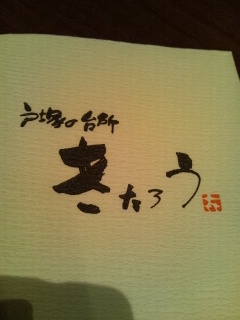 戸塚の台所
きたろう